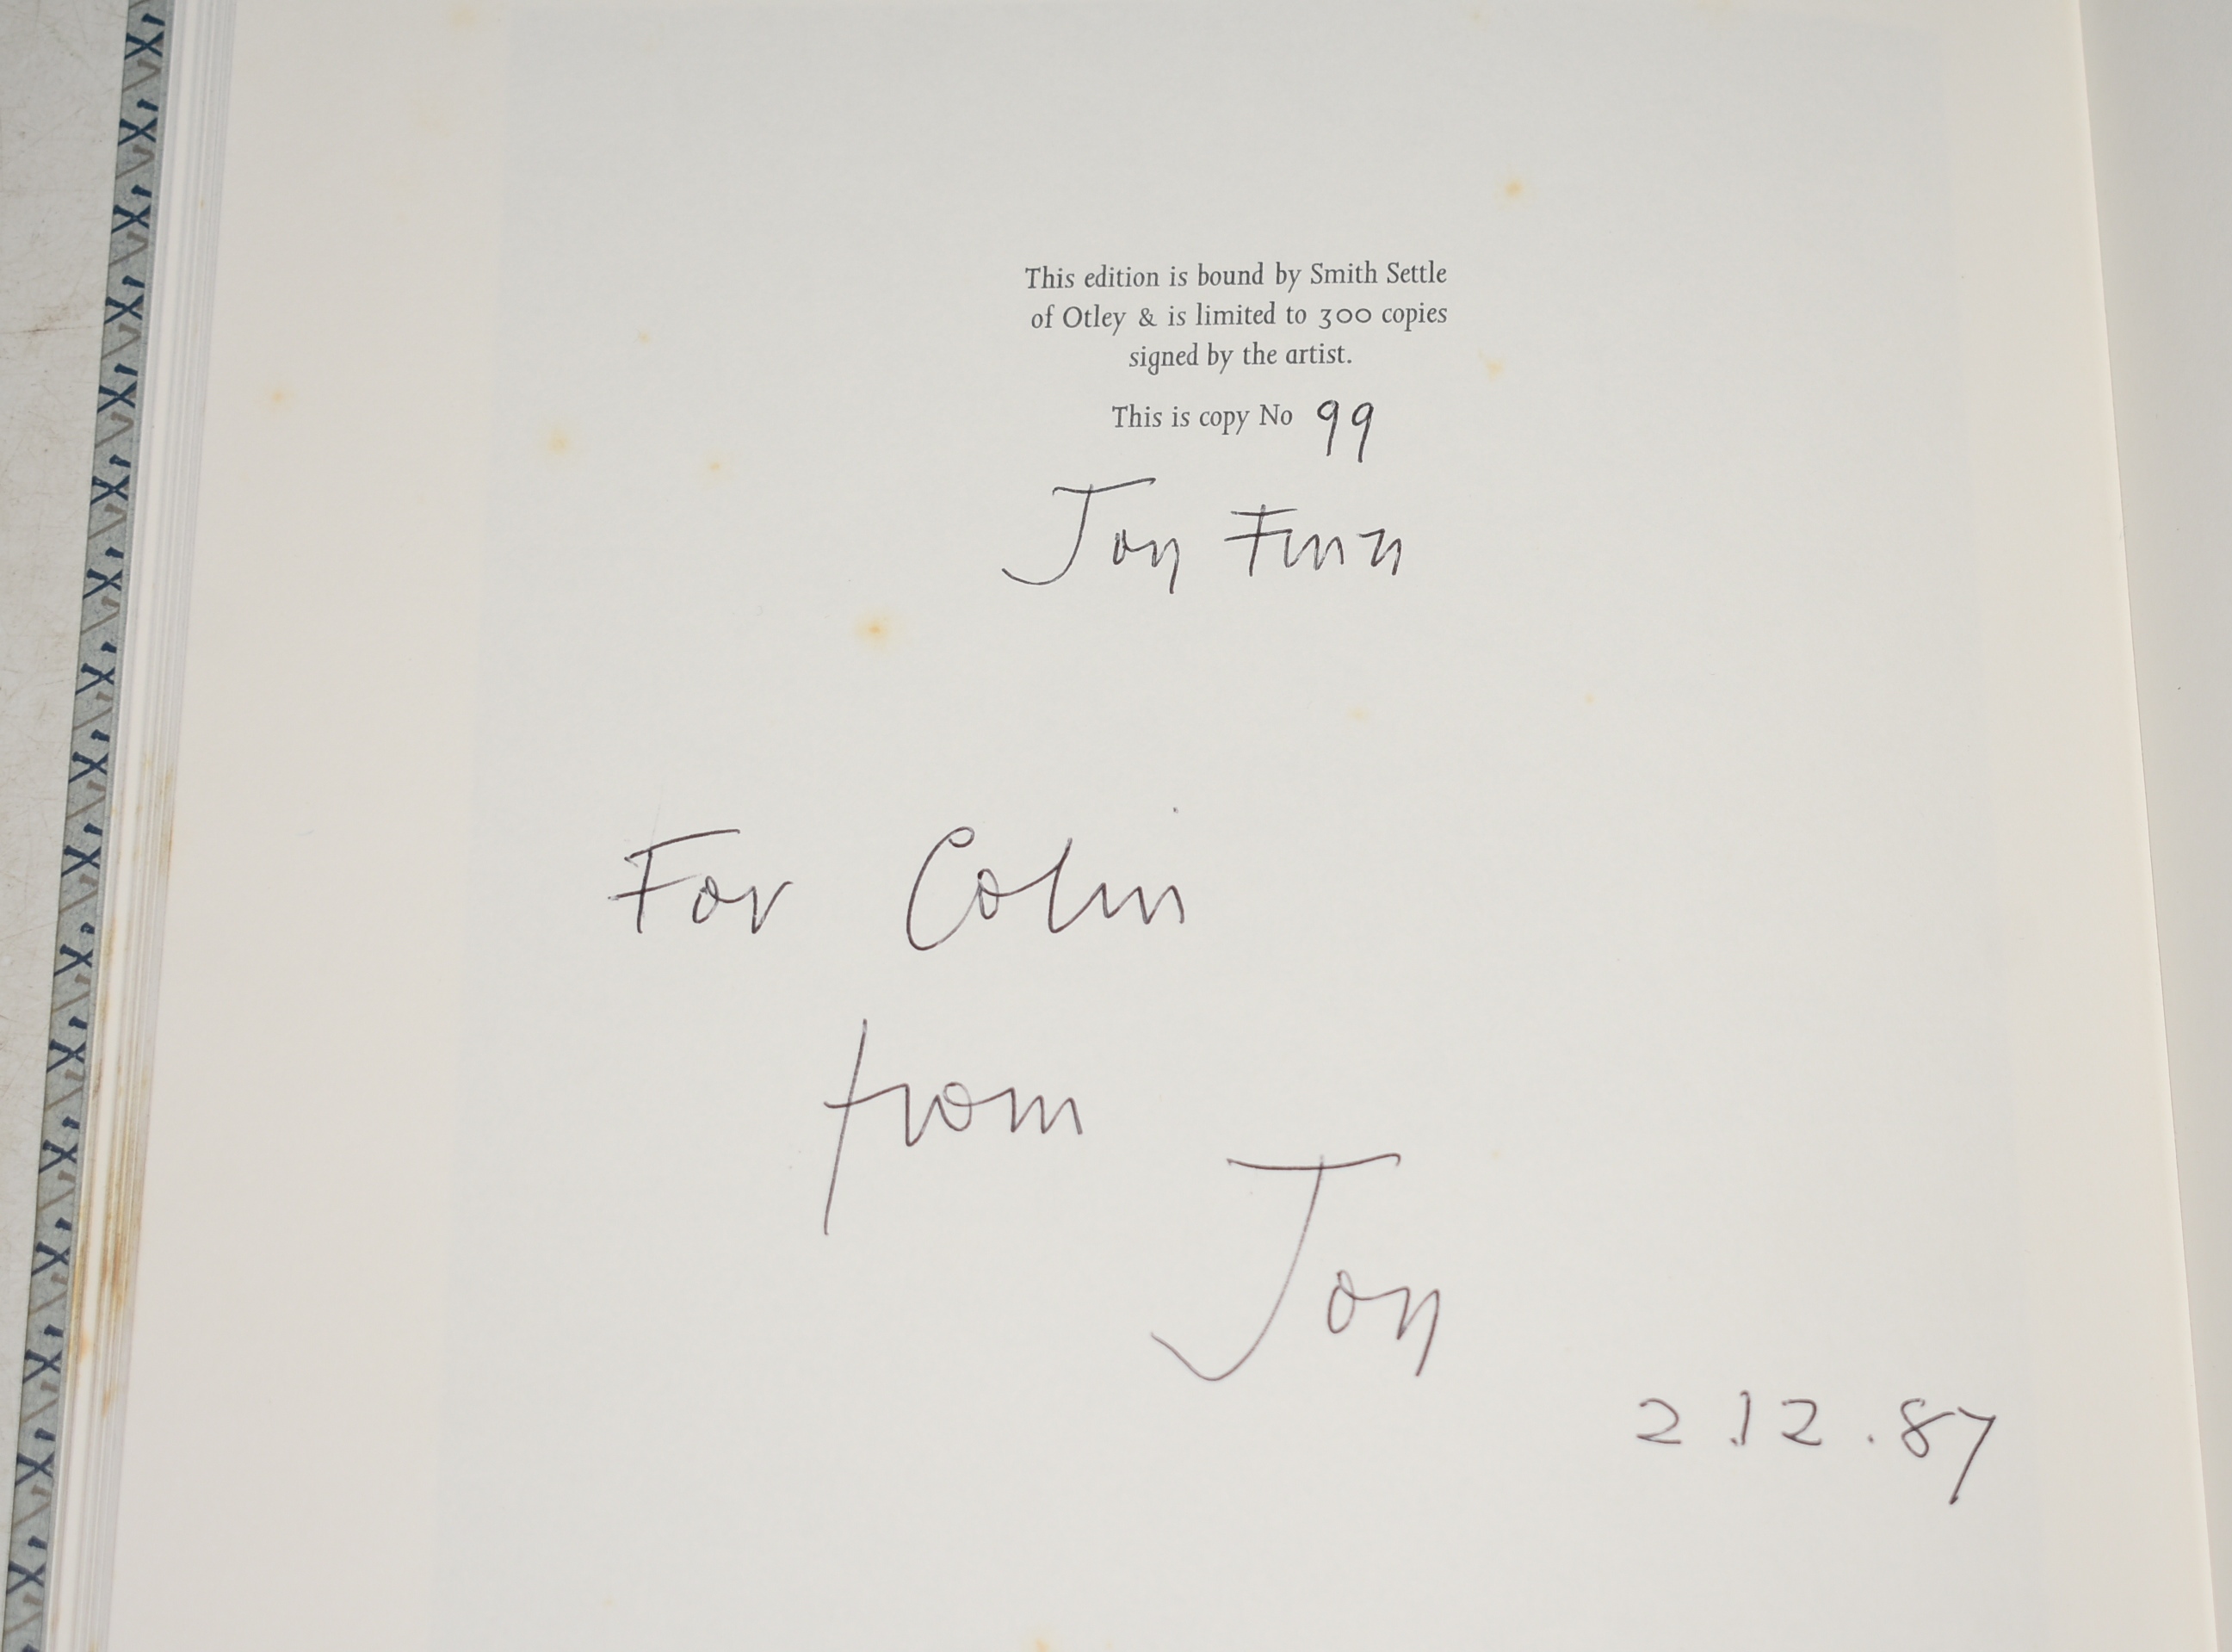 This edition is bound by Smith Settle
of Otley & is limited to 300 copies
signed by the artist.
This is copy No 99
Jon Finn
For Colin
from
Jon
2.12.87